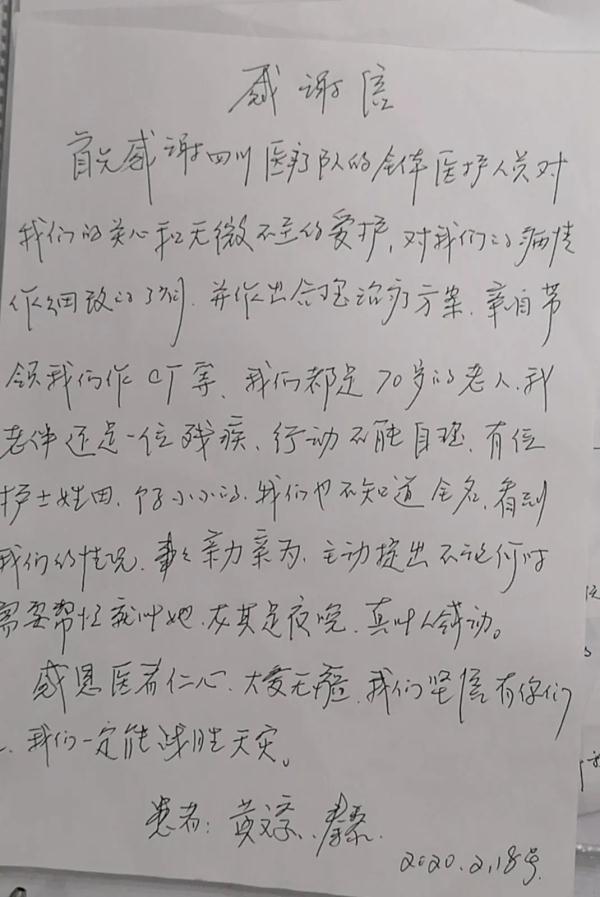 感谢信
首先感谢四川医疗队的全体医护人员对
我们的关心和无微不至的爱护，对我们的病情
作细致的了解．并作出合理治疗方案．亲自带
领我们作CT等．我们都是70岁的老人．我
老伴还是一位残疾、行动不能自理．有位
护士姓田．个子小小的．我们也不知道全名．看到
我们的情况．事之亲力亲为．主动提出不论何时
需要帮忙就叫她．尤其是夜晚．真叫人感动。
感恩医者仁心．大爱无疆．我们坚信有你们
．我们一定能战胜天灾。
患者：黄
2020.2.18号.